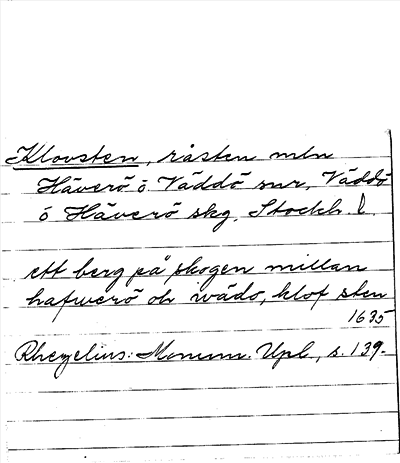 Klovsten, råsten mln
Häverö o. Väddö snr, Väddö
o Häverö skg. Stockh. l.
ett berg på skogen millan
hafwerö och wädö, klof sten
1635
Rhezelius: Monum. Upl., s. 139.